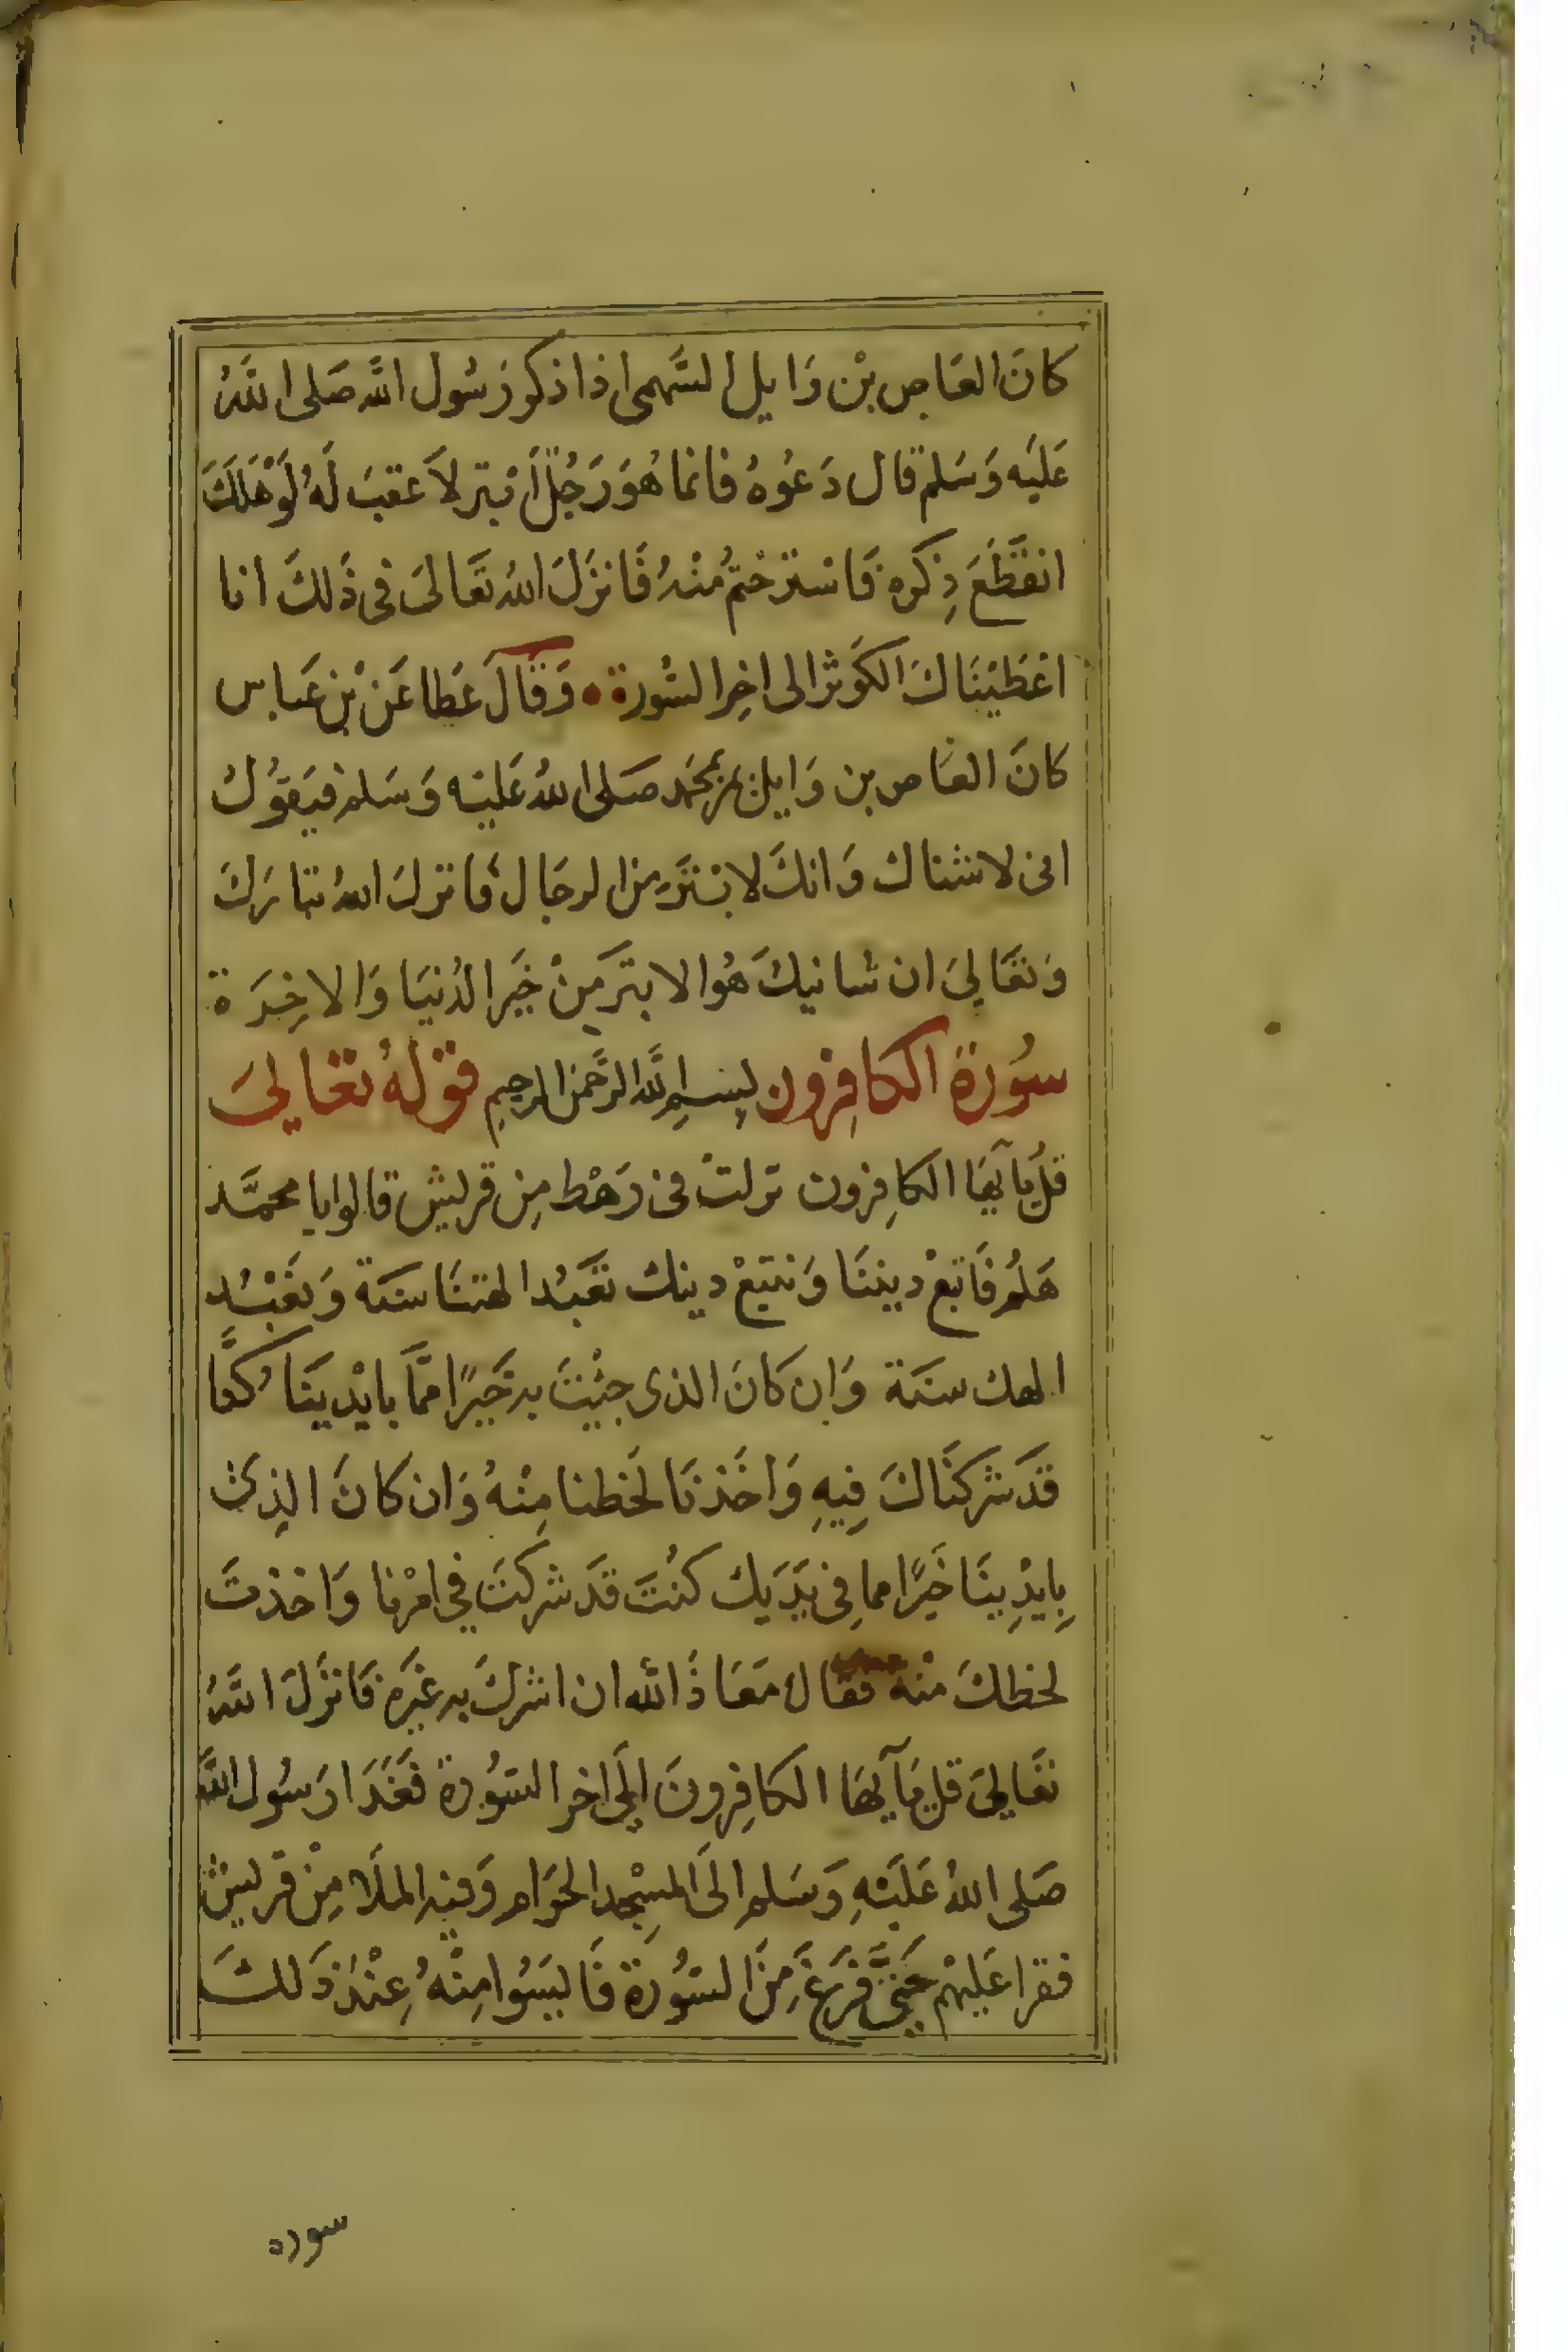 كانَ العَاص بْن وَايل السَّهمى اذا ذكر رَسُول الله صَلى اللهُ
عَليَه وَسَلم قال دَعُوهُ فانما هُوَ رَجُلٌ اَبْتر لاَ عقبَ لَهُ لَوْ هَلَكَ
انقَطَعَ ذِكره فَاسْترحْتُم مْنهُ فَانزَلَ اللهُ تَعَالىَ فى ذَلكَ انا
اعْطَيْنَاكَ الكَوثر الى اخِر السُورة وَقَالَ عَطا عَنْ بْن عَباس
كانَ العَاص بن وَايل يمر بمحَمد صَلى اللهُ عَليَه وَسَلم فيَقوُل
انى لاشناك وَانكَ لابْتَر مِن الرجَال فَانزلَ اللهُ تبَارَكَ
وَتعَالىَ ان شانيكَ هُوَ الابتر مِنْ خَير الدُنيَا وَالاخِرَة
سُورة الكافِرون بسم الله الرَّحمن الرحيم قولهُ تعَالىَ
قل يَآ ايهَا الكافِرون نزلتْ فى رَهْط مِن قريش قالوا يا محمَّد
هَلُم فَاتبعْ ديننَا وَنتبعْ دينك تعَبُد الهتنَا سَنَة وَنعْبُد
الهك سَنَة وَان كانَ الذى جئْتَ به خَيرًا ممَّا بايْدينَا كنَّا
قدَ شركنَاكَ فِيهِ وَاخَذنَا لحَظنا مِنْهُ وَان كانَ الذِى
بِايْدِينَا خَيرًا مما فِى يَدَيك كنُتَ قدَ شركتَ في امْرنا وَاخذتَ
لحظكَ منْه فقال مَعَاذَ الله ان اشركَ به غيَره فَانزَلَ اللهُ
تعَالىَ قل يَآ ايهَا الكافِرونَ الىَ اخر السُورة فَغَدَا رَسُول الله
صَلى اللهُ عَليَهِ وَسَلم الىَ المسِجْد الحرَام وَفيه الملَا مِنْ قريش
فقرا عَليهم حَتىَّ فرَغَ مِنَ السُورة فَايسَوُا مِنْهُ عِنْدَ ذَلكَ
سوره